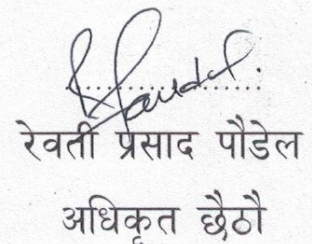 रेवती प्रसाद पौडेल
अधिकृत छैठौ